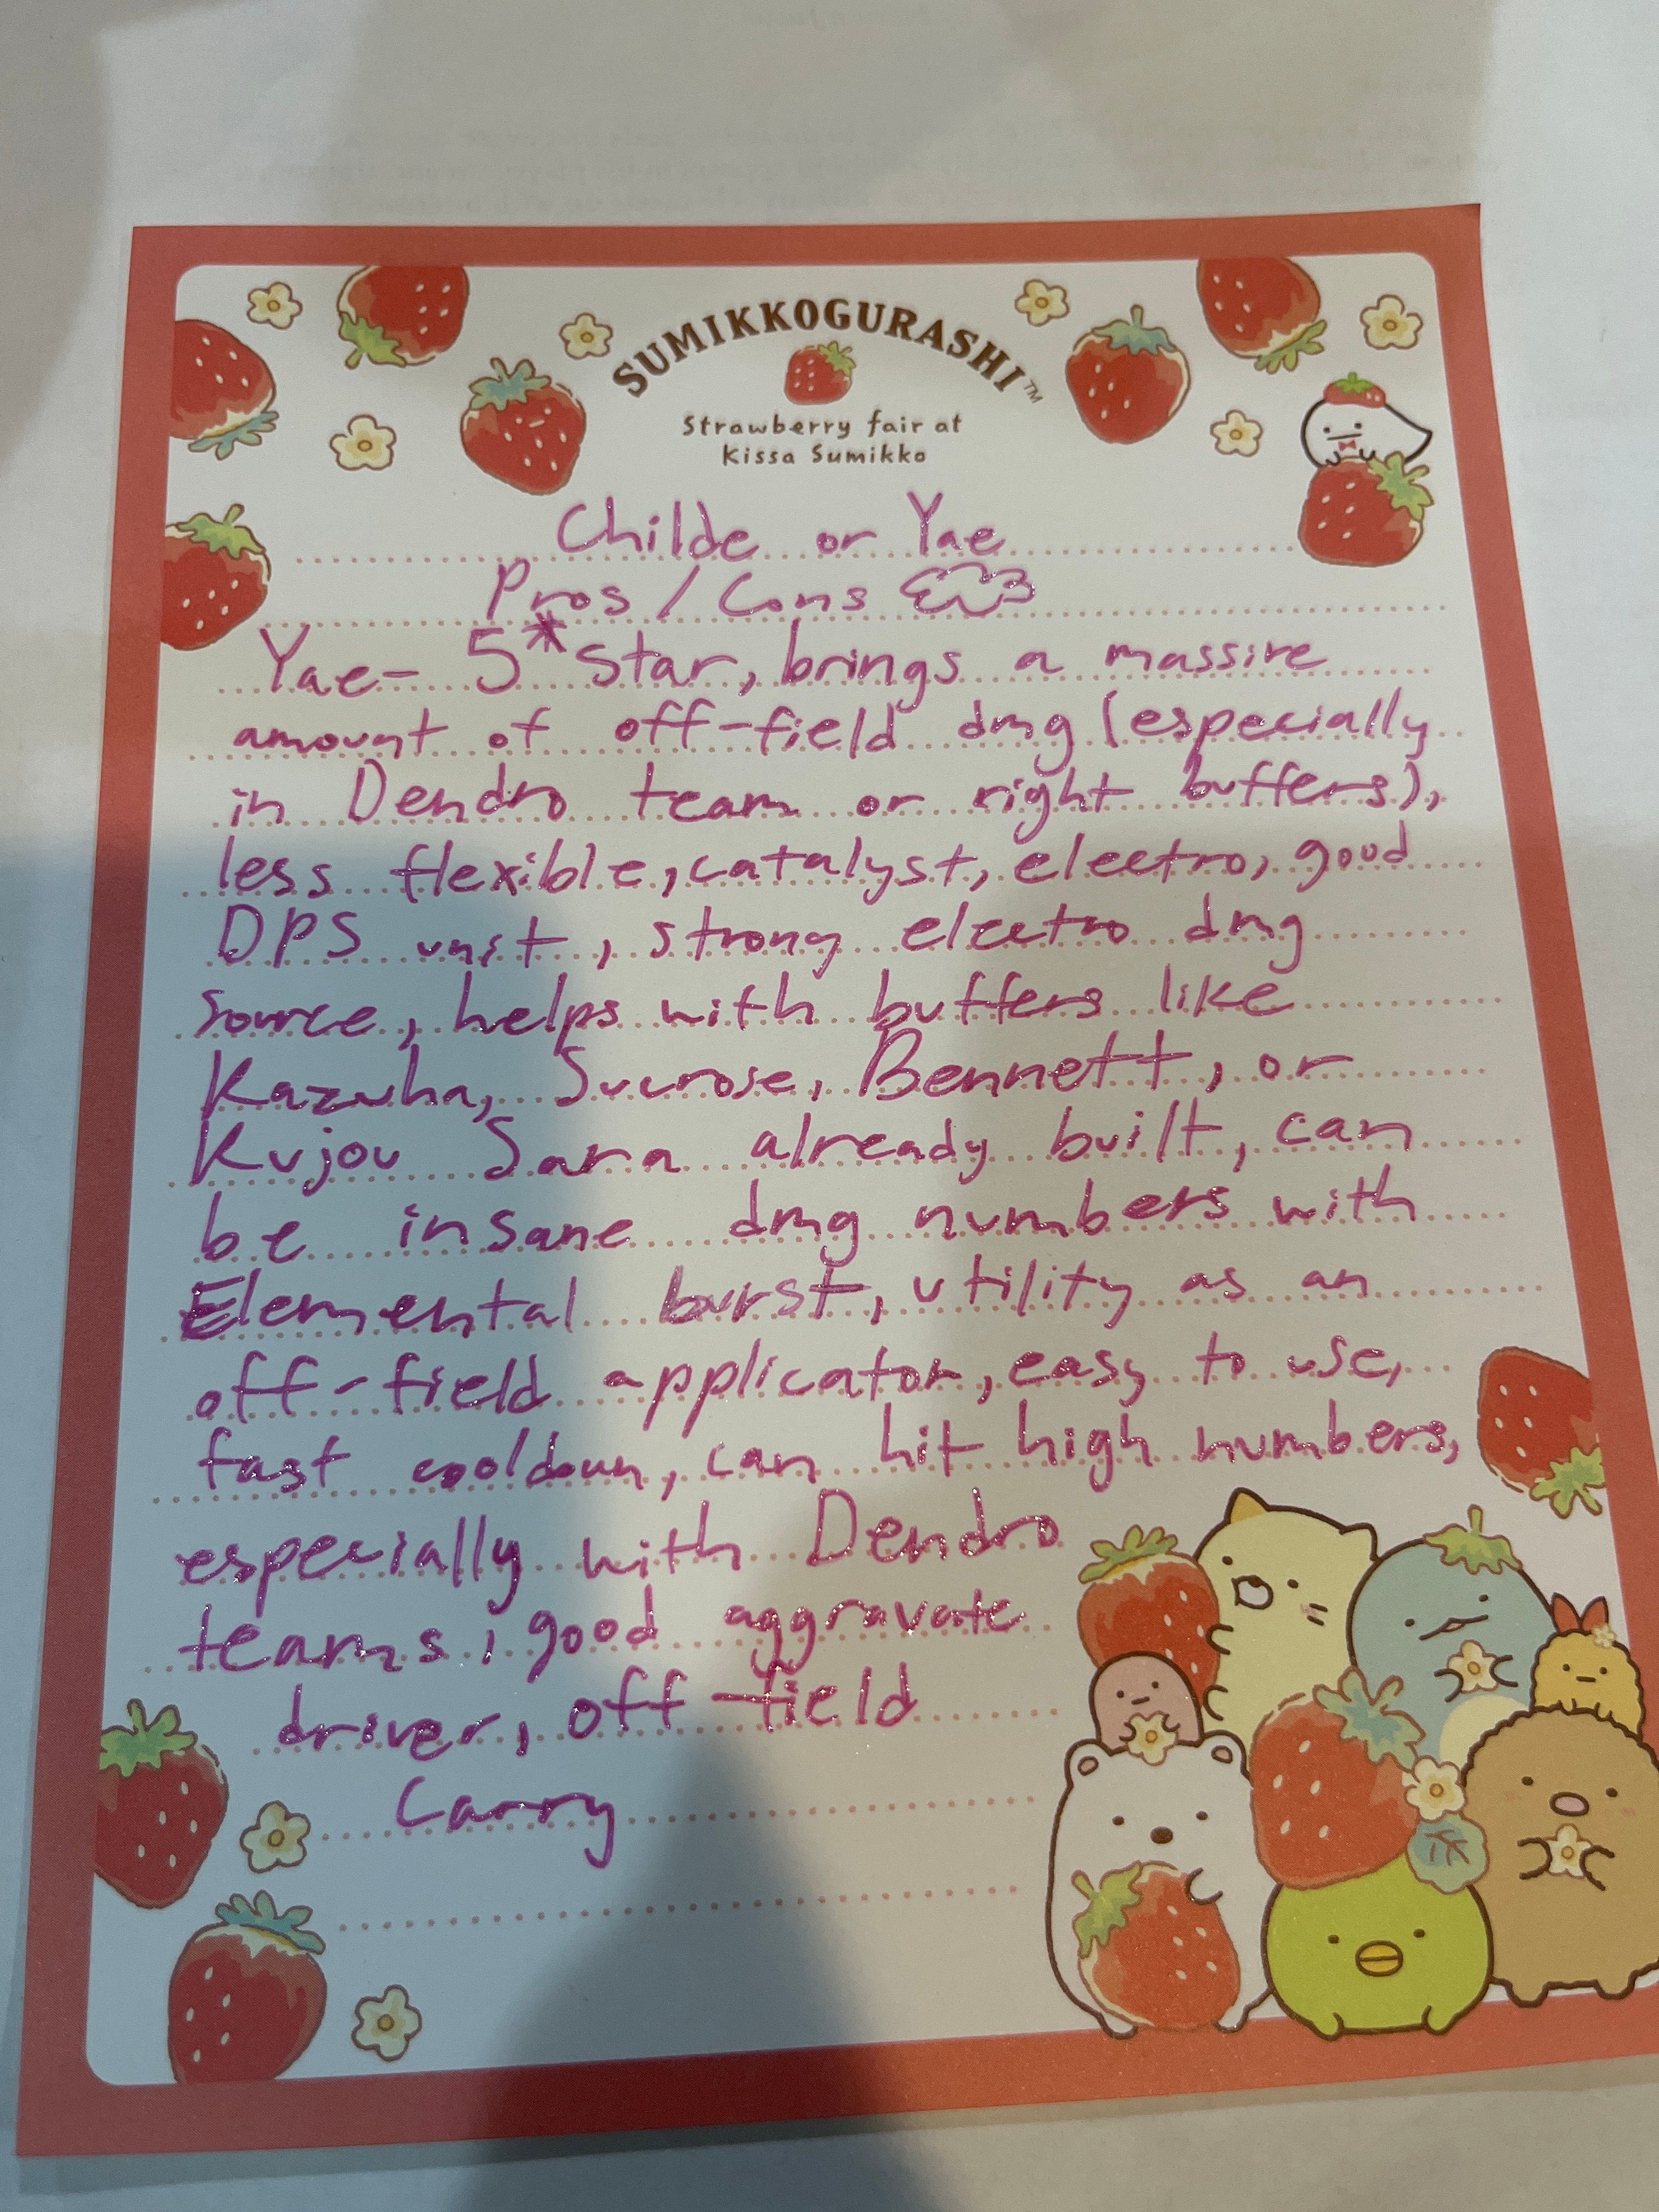 SUMIKKOGURASHI™
Strawberry fair at
Kissa Sumikko
Childe or Yae
Pros / Cons
Yae- 5* Star, brings a massive
amount of off-field dmg (especially
in Dendro team or right buffers),
less flexible, catalyst, electro, good
DPS unit, strong electro dmg
source, helps with buffers like
Kazuha, Sucrose, Bennett, or
Kujou Sara already built, can
be insane dmg numbers with
Elemental burst, utility as an
off-field applicator, easy to use,
fast cooldown, can hit high numbers,
especially with Dendro
teams, good aggravate
driver, off-field
Carry